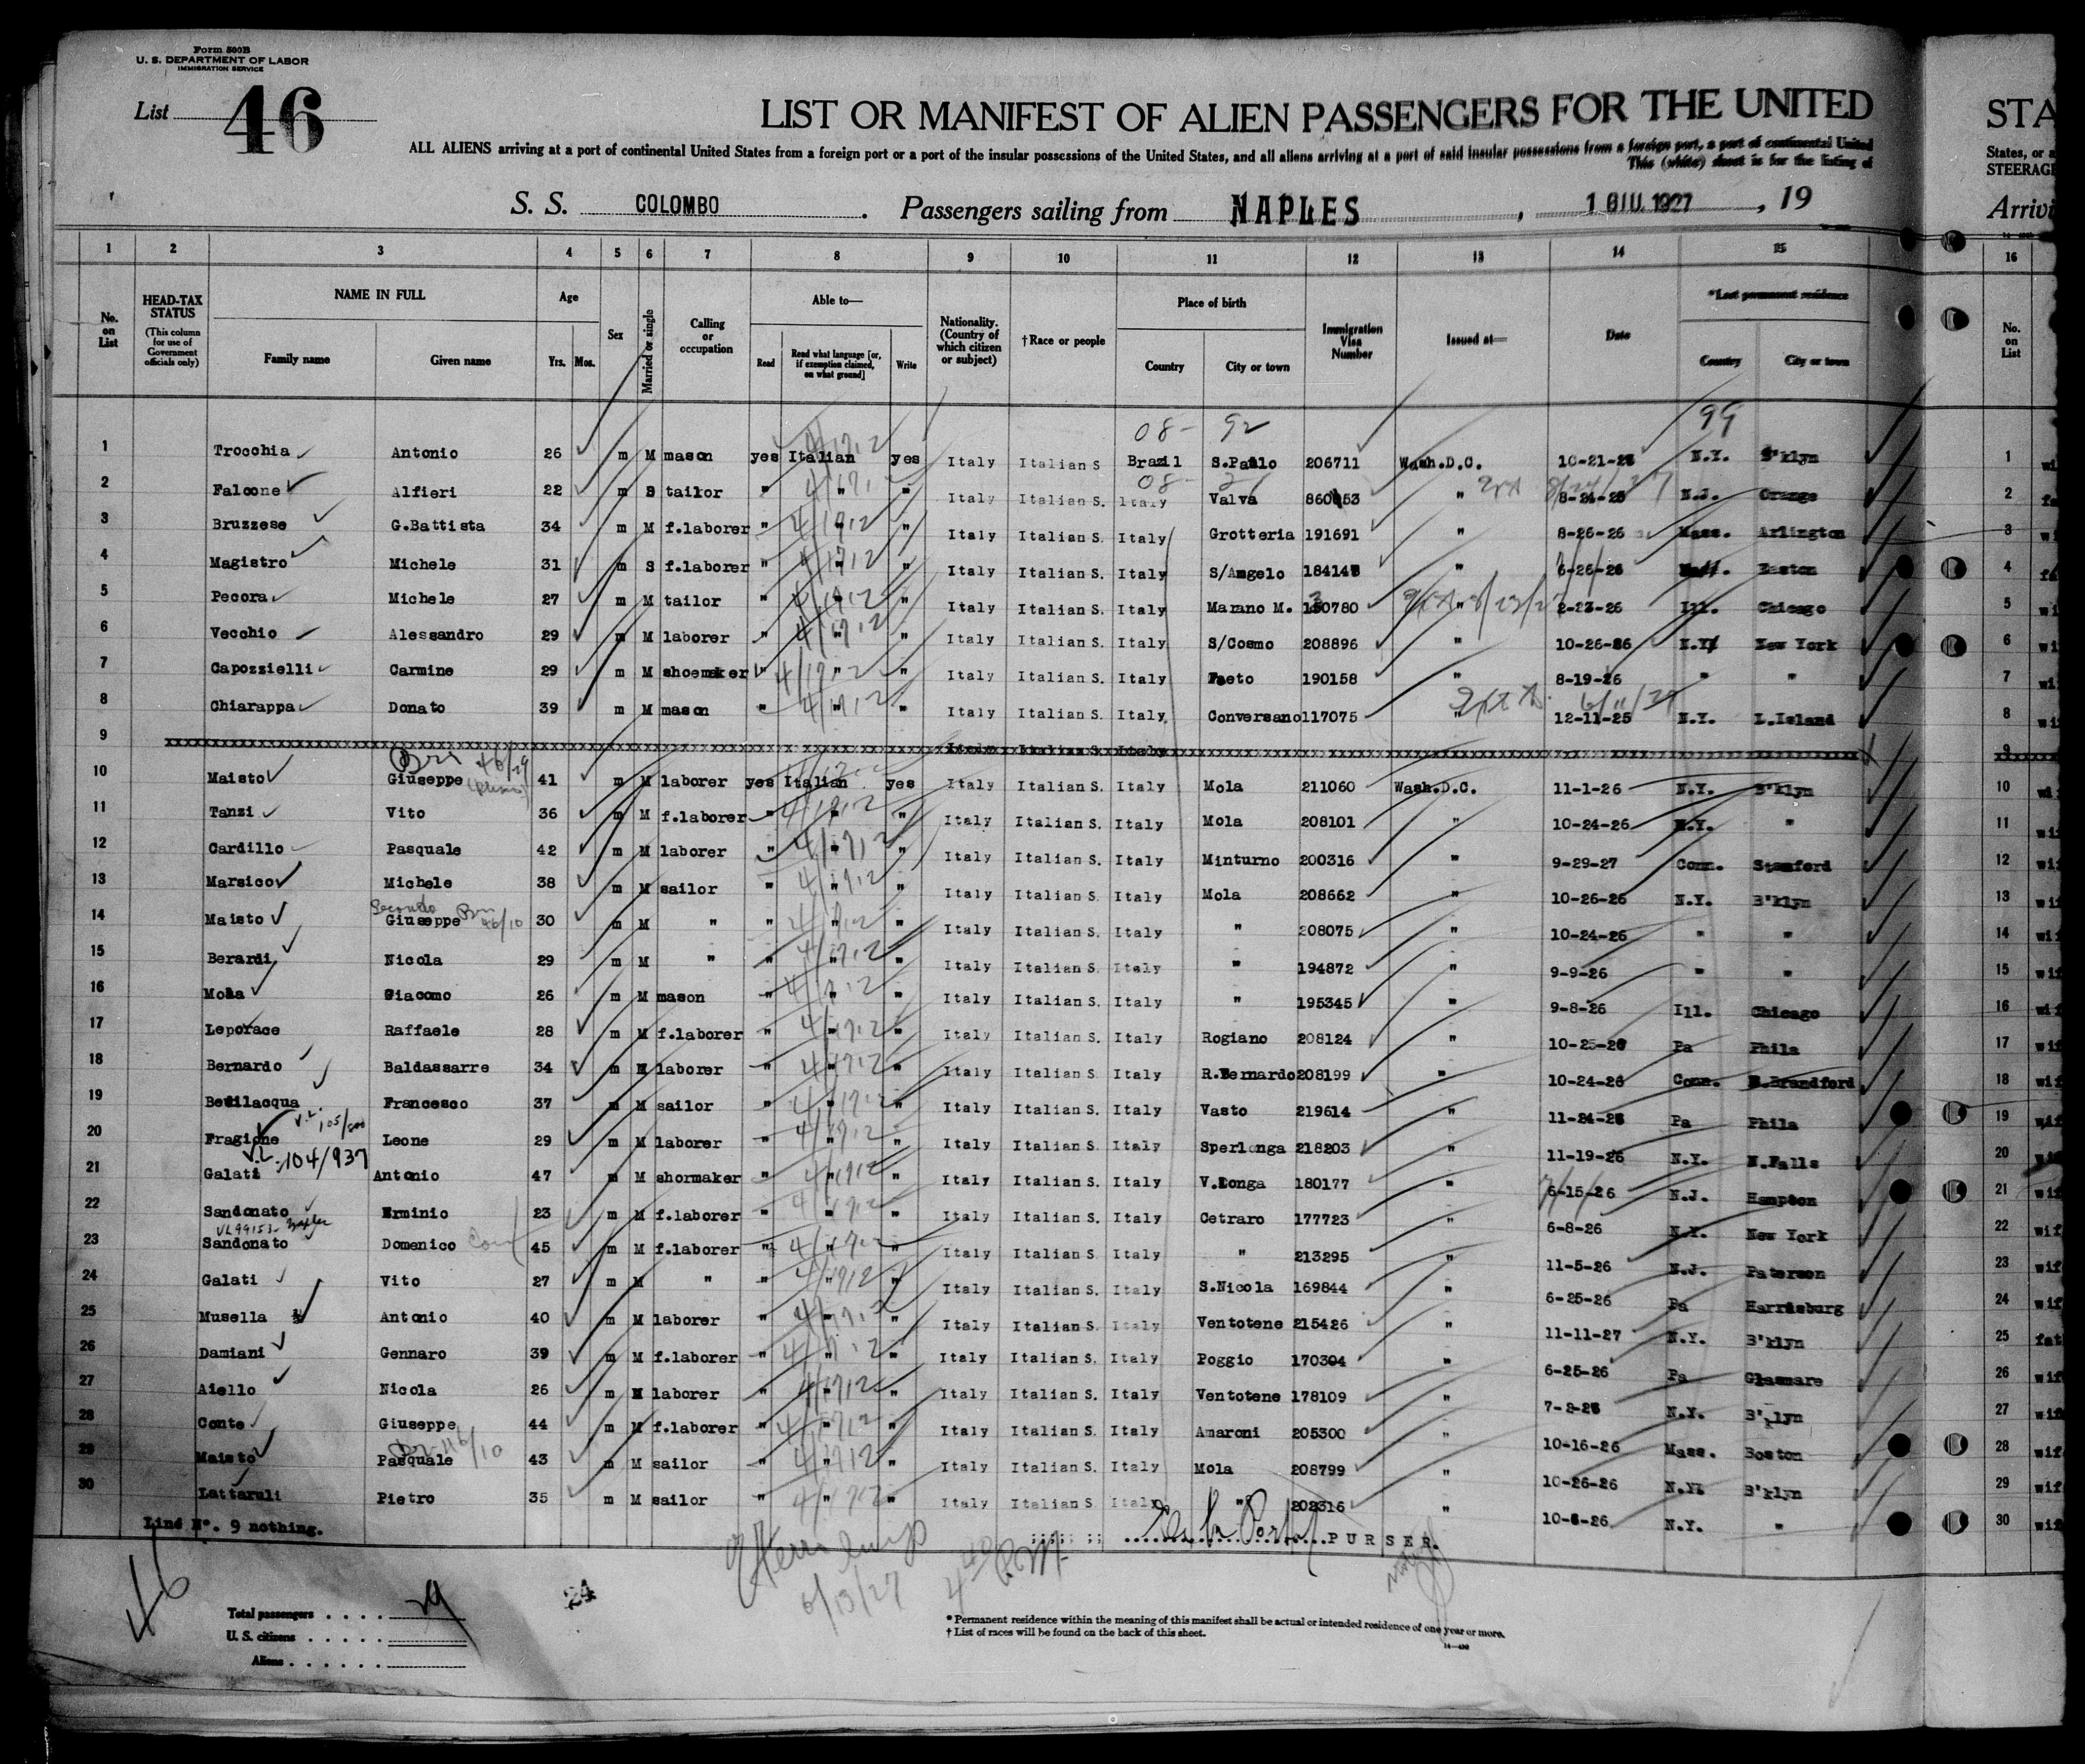 Form 500B
U. S. DEPARTMENT OF LABOR
IMMIGRATION SERVICE
List 46
LIST OR MANIFEST OF ALIEN PASSENGERS FOR THE UNITED STA
ALL ALIENS arriving at a port of continental United States from a foreign port or a port of the insular possessions of the United States, and all aliens arriving at a port of said insular possessions from a foreign port, a port of continental United States, or a
This (white) sheet is for the listing of STEERAGE
S. S. COLOMBO. Passengers sailing from NAPLES, 1 GIU. 1927, 19 Arrivi
1 2 3 4 5 6 7 8 9 10 11 12 13 14 15 16
No. on List
HEAD-TAX STATUS
(This column for use of Government officials only)
NAME IN FULL
Family name Given name
Age
Yrs. Mos.
Sex
Married or single
Calling or occupation
Able to—
Read
Read what language [or, if exemption claimed, on what ground]
Write
Nationality. (Country of which citizen or subject)
†Race or people
Place of birth
Country City or town
Immigration Visa Number
Issued at—
Date
*Last permanent residence
Country City or town
No. on List
08- 92 99
1 Trocchia Antonio 26 m M mason yes Italian yes Italy Italian S Brazil S.Paulo 206711 Wash.D.C. 10-21-26 N.Y. B'klyn 1
2 Falcone Alfieri 22 m S tailor " " " Italy Italian S. Italy Valva 860053 " 8-24-26 N.J. Orange 2
3 Bruzzese G.Battista 34 m M f.laborer " " " Italy Italian S. Italy Grotteria 191691 " 8-26-26 Mass. Arlington 3
4 Magistro Michele 31 m S f.laborer " " " Italy Italian S. Italy S/Angelo 184148 " 6-26-26 Easton 4
5 Pecora Michele 27 m M tailor " " " Italy Italian S. Italy Marano M. 130780 " 2-23-26 Ill. Chicago 5
6 Vecchio Alessandro 29 m M laborer " " " Italy Italian S. Italy S/Cosmo 208896 " 10-26-26 N.Y. New York 6
7 Capozzielli Carmine 29 m M shoemaker " " " Italy Italian S. Italy Faeto 190158 " 8-19-26 " " 7
8 Chiarappa Donato 39 m M mason " " " Italy Italian S. Italy Conversano 117075 " 12-11-25 N.Y. L.Island 8
9 Italy Italian S. Italy 9
10 Maisto Giuseppe 41 m M laborer yes Italian yes Italy Italian S. Italy Mola 211060 Wash.D.C. 11-1-26 N.Y. B'klyn 10
11 Tanzi Vito 36 m M f.laborer " " " Italy Italian S. Italy Mola 208101 " 10-24-26 N.Y. " 11
12 Cardillo Pasquale 42 m M laborer " " " Italy Italian S. Italy Minturno 200316 " 9-29-27 Conn. Stamford 12
13 Marsico Michele 38 m M sailor " " " Italy Italian S. Italy Mola 208662 " 10-26-26 N.Y. B'klyn 13
Secondo
14 Maisto Giuseppe 30 m M " " " " Italy Italian S. Italy " 208075 " 10-24-26 " " 14
15 Berardi Nicola 29 m M " " " " Italy Italian S. Italy " 194872 " 9-9-26 " " 15
16 Mola Giacomo 26 m M mason " " " Italy Italian S. Italy " 195345 " 9-8-26 Ill. Chicago 16
17 Leporace Raffaele 28 m M f.laborer " " " Italy Italian S. Italy Rogiano 208124 " 10-25-26 Pa Phila 17
18 Bernardo Baldassarre 34 m M laborer " " " Italy Italian S. Italy R.Bernardo 208199 " 10-24-26 Conn. Brandford 18
19 Bevilacqua Francesco 37 m M sailor " " " Italy Italian S. Italy Vasto 219614 " 11-24-26 Pa Phila 19
20 Fragione Leone 29 m M laborer " " " Italy Italian S. Italy Sperlonga 218203 " 11-19-26 N.Y. N.Falls 20
V.L. 104/937
21 Galati Antonio 47 m M shormaker " " " Italy Italian S. Italy V.Longa 180177 " 6-15-26 N.J. Hampton 21
22 Sandonato Erminio 23 m M f.laborer " " " Italy Italian S. Italy Cetraro 177723 " 6-8-26 N.Y. New York 22
23 Sandonato Domenico 45 m M f.laborer " " " Italy Italian S. Italy " 213295 " 11-5-26 N.J. Paterson 23
24 Galati Vito 27 m M " " " " Italy Italian S. Italy S.Nicola 169844 " 6-25-26 Pa Harrisburg 24
25 Musella Antonio 40 m M laborer " " " Italy Italian S. Italy Ventotene 215426 " 11-11-27 N.Y. B'klyn 25
26 Damiani Gennaro 39 m M f.laborer " " " Italy Italian S. Italy Poggio 170304 " 6-25-26 Pa 26
27 Aiello Nicola 26 m M laborer " " " Italy Italian S. Italy Ventotene 178109 " 7-2-26 N.Y. B'klyn 27
28 Conte Giuseppe 44 m M f.laborer " " " Italy Italian S. Italy Amaroni 205300 " 10-16-26 Mass. Boston 28
29 Maisto Pasquale 43 m M sailor " " " Italy Italian S. Italy Mola 208799 " 10-26-26 N.Y. B'klyn 29
30 Lattaruli Pietro 35 m M sailor " " " Italy Italian S. Italy " 202316 " 10-6-26 N.Y. " 30
Lind N°. 9 nothing.
PURSER.
46
6/13/27
Total passengers . . . . 29
24
U. S. citizens . . . . .
Aliens . . . . . .
* Permanent residence within the meaning of this manifest shall be actual or intended residence of one year or more.
† List of races will be found on the back of this sheet.